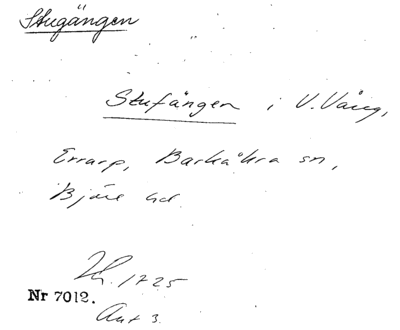 Stugängen
Stufängen i V. Vång,
Errarp, Barkåkra sn,
Bjäre hd.
1725
Nr 7012.
Akt 3.